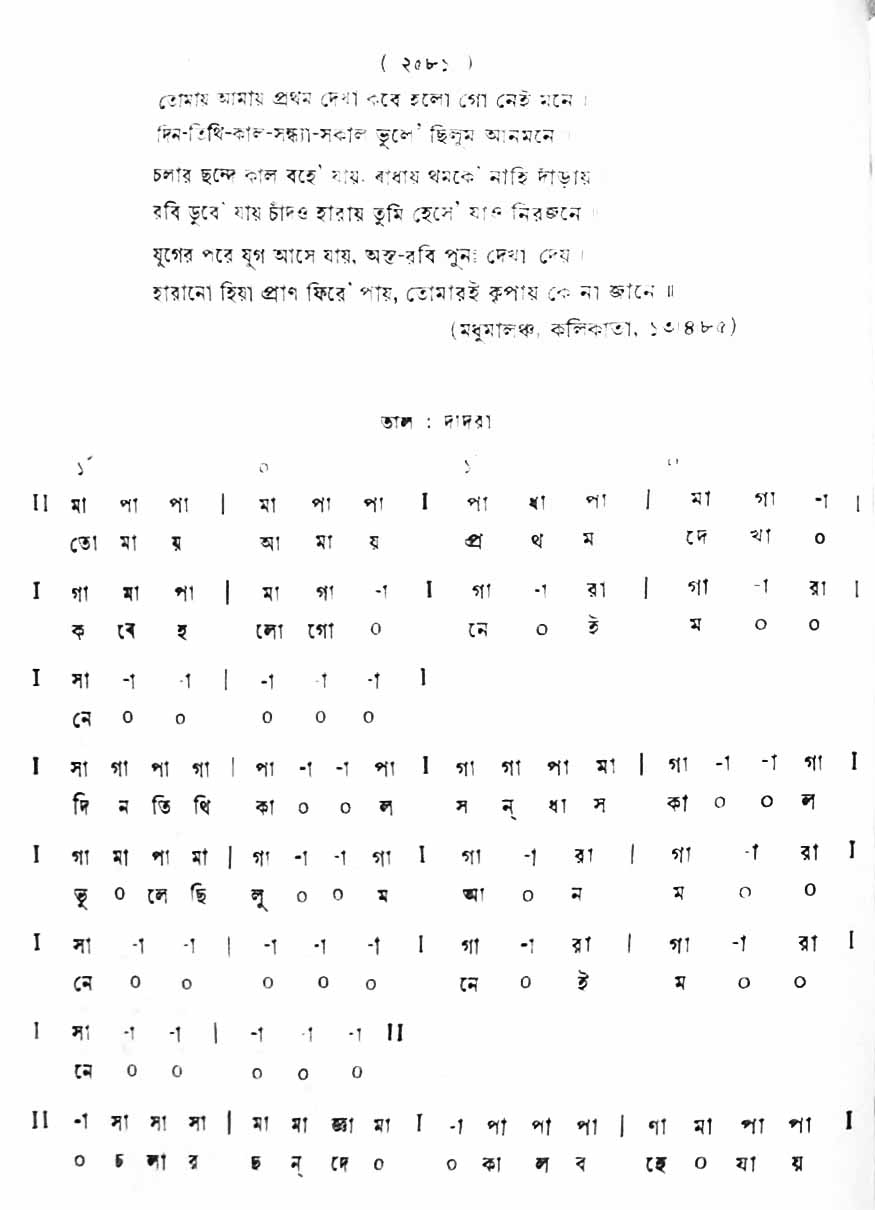 ( ২৫৮১ )
তোমায় আমায় প্রথম দেখা কবে হলো গো নেই মনে ।
দিন-তিথি-কাল-সন্ধ্যা-সকাল ভুলে' ছিলুম আনমনে ।
চলার ছন্দে কাল বহে' যায়, বাধায় থমকে' নাহি দাঁড়ায়
রবি ডুবে' যায় চাঁদও হারায় তুমি হেসে' যাও নিরজনে ।
যুগের পরে যুগ আসে যায়, অস্ত-রবি পুনঃ দেখা দেয় ।
হারানো হিয়া প্রাণ ফিরে' পায়, তোমারই কৃপায় কে না জানে ॥
(মধুমালঞ্চ, কলিকাতা, ১৩/৪৮৫)
তাল : দাদরা
১´ ০ ১
II মা পা পা | মা পা পা I পা ধা পা | মা গা -া |
তো মা য় আ মা য় প্র থ ম দে খা ০
I গা মা পা | মা গা -া I গা -া রা | গা -া রা |
ক বে হ লো গো ০ নে ০ ই ম ০ ০
I সা -া -া | -া -া -া I
নে ০ ০ ০ ০ ০
I সা গা পা গা | পা -া -া পা I গা গা পা মা | গা -া -া গা I
দি ন তি থি কা ০ ০ ল স ন্ ধা স কা ০ ০ ল
I গা মা পা মা | গা -া -া গা I গা -া রা | গা -া রা I
ভু ০ লে ছি লু ০ ০ ম আ ০ ন ম ০ ০
I সা -া -া | -া -া -া I গা -া রা | গা -া রা I
নে ০ ০ ০ ০ ০ নে ০ ই ম ০ ০
I সা -া -া | -া -া -া II
নে ০ ০ ০ ০ ০
II -া সা সা সা | মা মা জ্ঞা মা I -া পা পা পা | ণা মা পা পা I
০ চ লা র চ ন্ দে ০ ০ কা ল ব হে ০ যা য়